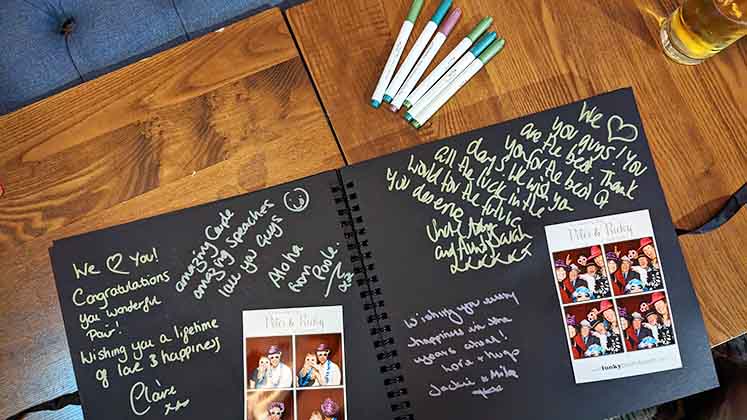 We ♡ You!
Congratulations
you wonderful
Pair!
Wishing you a lifetime
of love & happiness
Claire
xx
amazing
amazing speaches
love you guys
Aloha
from Poole.
Peter & Ricky
We ♡
you guys! You
are the best.
all days you for the best Q
Thank
the luck in the We wish you
World for the future
You deserve
Uncle
and Aunt Sarah
xxxxxx
Wishing you every
happiness in the
years ahead!
love + hugs
Jackie & Mike
xxx
Peter & Ricky
www.funky